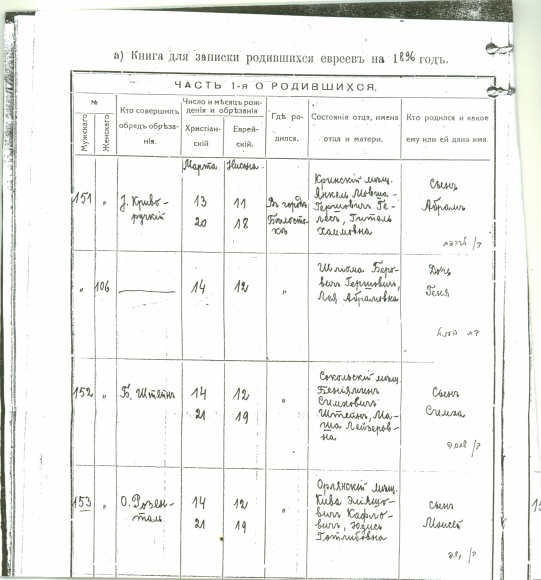 а) Книга для записки родившихся евреев на 1896 годъ.
ЧАСТЬ 1-я О РОДИВШИХСЯ.
№
Мужскаго
Женскаго
Кто совершилъ
обрядъ обрѣза-
нія.
Число и мѣсяцъ рож-
денія и обрѣзанія
Христіан-
скій
Еврей-
скій.
Гдѣ ро-
дился.
Состояніе отца, имена
отца и матери.
Кто родился и какое
ему или ей дано имя.
Марта Нисана
151 "
13 11
20 18
Въ городѣ
Бѣлосто-
кѣ
Кринскій мѣщ.
Янкель Мовша-
Гершовичъ
Хаимовна
Сынъ
Абрамъ
" 106
14 12
"
Шлiома Беро-
вичъ Гершовичъ,
Лея Абрамовна
Дочь
Геня
152 "
Б. Штейнъ
14 12
21 19
"
Сокольскій мѣщ.
Беніяминъ
Симховичъ
Штейнъ, Ма-
ша Лейзеров-
на
Сынъ
Симха
153 "
О. Розен-
таль
14 12
21 19
"
Орлянскій мѣщ.
Кива
Готлибовна
Сынъ
Моисей